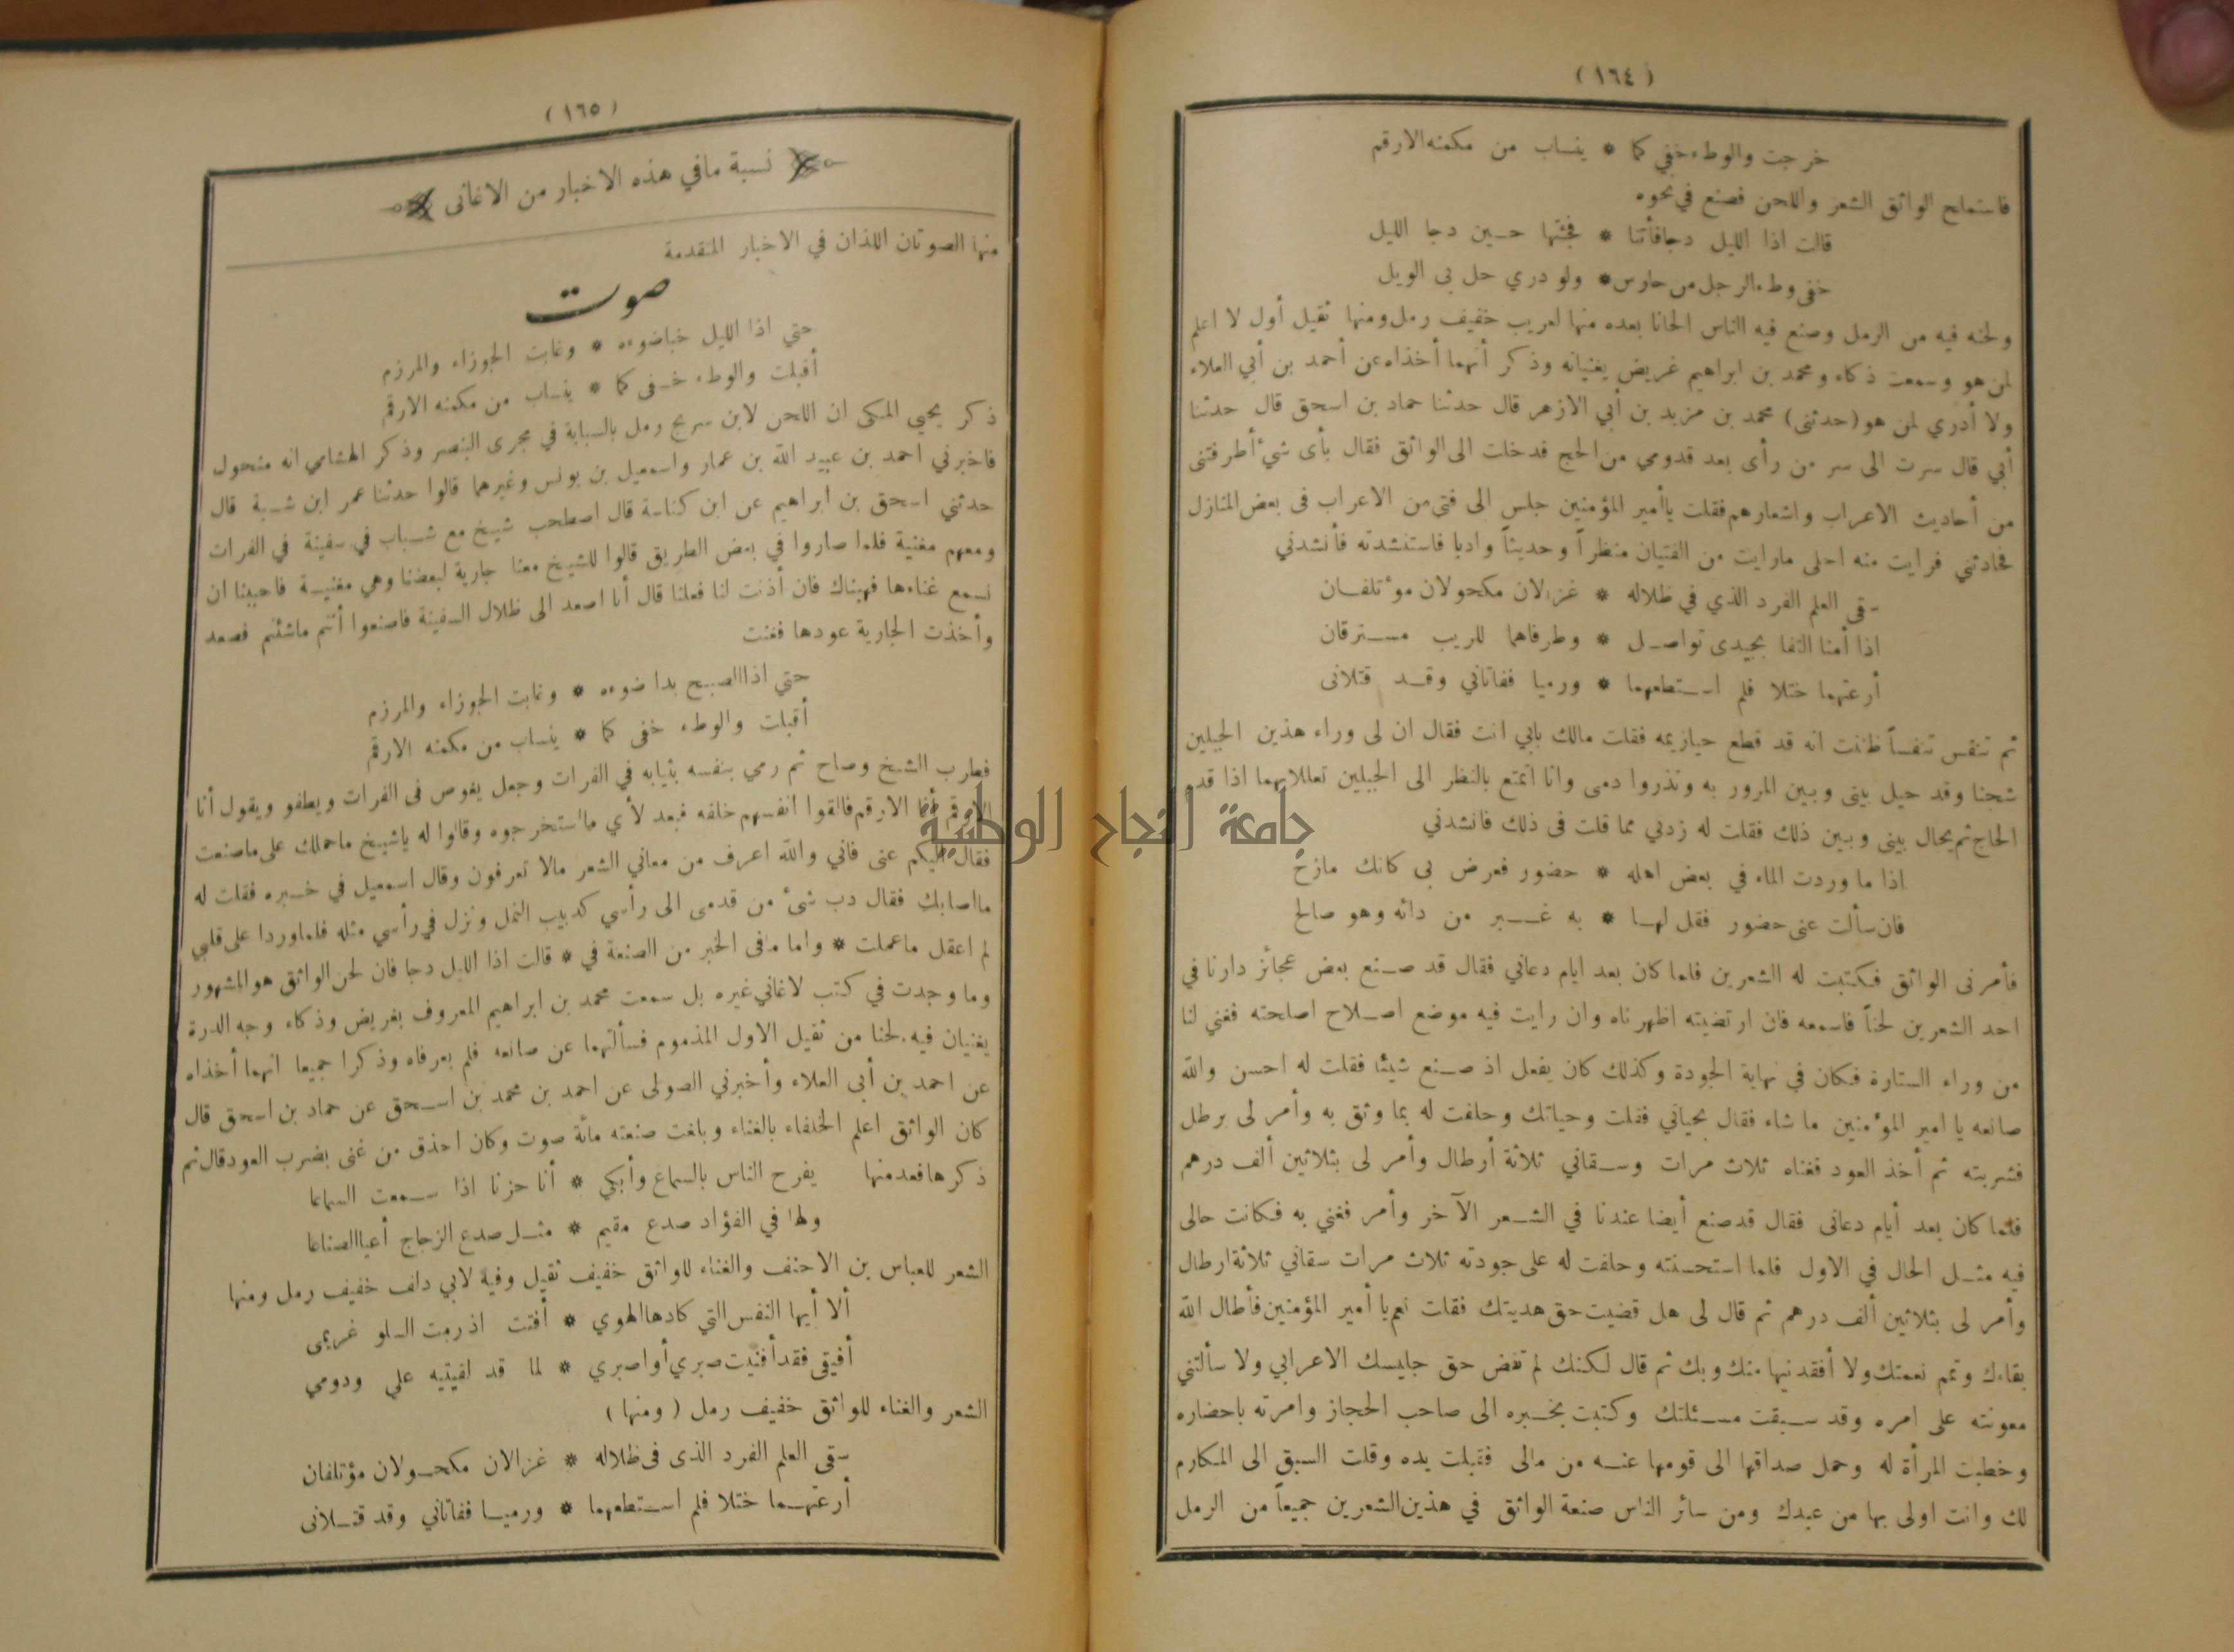 (١٦٤)
خرجت والوطء خفي كما * ينساب من مكمنه الارقم
فاستملح الواثق الشعر واللحن فصنع في نحوه
قالت اذا الليل دجا فأتنا * فجئتها حين دجا الليل
خفي وطء الرجل من حارس * ولو دري حل بى الويل
ولحنه فيه من الرمل وصنع فيه الناس الحانا بعده منها لعريب خفيف رمل ومنها ثقيل أول لا اعلم
لمن هو وسمعت ذكاء ومحمد بن ابراهيم غريض يغنيانه وذكر أنهما أخذاه عن أحمد بن أبي العلاء
ولا أدري لمن هو (حدثنى) محمد بن مزيد بن أبي الازهر قال حدثنا حماد بن اسحق قال حدثنا
أبي قال سرت الى سر من رأى بعد قدومي من الحج فدخلت الى الواثق فقال بأى شئ أطرفتنى
من أحاديث الاعراب واشعارهم فقلت يا أمير المؤمنين جلس الى فتى من الاعراب فى بعض المنازل
فحادثني فرايت منه احلى مارايت من الفتيان منظراً وحديثاً وادبا فاستنشدته فأنشدني
سقى العلم الفرد الذي في ظلاله * غزالان مكحولان مؤتلفان
اذا أمنا التفا بجيدى تواصل * وطرفاهما للريب مسترقان
أرغتهما ختلا فلم استطعهما * ورميا ففاتاني وقد قتلانى
ثم تنفس تنفساً ظننت انه قد قطع حيازيمه فقلت مالك بابي انت فقال ان لى وراء هذين الجبلين
شجنا وقد حيل بينى وبين المرور به ونذروا دمى وانا اتمتع بالنظر الى الجبلين تعللا بهما اذا قدم
الحاج ثم يحال بينى وبين ذلك فقلت له زدني مما قلت فى ذلك فانشدني
اذا ما وردت الماء في بعض اهله * حضور فعرض بى كانك مازح
فان سألت عنى حضور فقل لها * به غبر من دائه وهو صالح
فأمرنى الواثق فكتبت له الشعرين فلما كان بعد ايام دعاني فقال قد صنع بعض عجائز دارنا في
احد الشعرين لحناً فاسمعه فان ارتضيته اظهرناه وان رايت فيه موضع اصلاح اصلحته فغني لنا
من وراء الستارة فكان في نهاية الجودة وكذلك كان يفعل اذ صنع شيئا فقلت له احسن والله
صانعه يا امير المؤمنين ما شاء فقال بحياتي فقلت وحياتك وحلفت له بما وثق به وأمر لى برطل
فشربته ثم أخذ العود فغناه ثلاث مرات وسقاني ثلاثة أرطال وأمر لى بثلاثين ألف درهم
فلما كان بعد أيام دعانى فقال قد صنع أيضا عندنا في الشعر الآخر وأمر فغني به فكانت حالى
فيه مثل الحال في الاول فلما استحسنته وحلفت له على جودته ثلاث مرات سقاني ثلاثة ارطال
وأمر لى بثلاثين ألف درهم ثم قال لى هل قضيت حق هديتك فقلت نعم يا أمير المؤمنين فأطال الله
بقاءك وتمم نعمتك ولا أفقدنيها منك وبك ثم قال لكنك لم تقض حق جليسك الاعرابي ولا سألتني
معونته على امره وقد سبقت مسئلتك وكتبت بخبره الى صاحب الحجاز وامرته باحضاره
وخطبت المرأة له وحمل صداقها الى قومها عنه من مالى فقبلت يده وقلت السبق الى المكارم
لك وانت اولى بها من عبدك ومن سائر الناس صنعة الواثق في هذين الشعرين جميعاً من الرمل
(١٦٥)
نسبة مافي هذه الاخبار من الاغانى
منها الصوتان اللذان في الاخبار المتقدمة
صوت
حتي اذا الليل خبا ضوءه * وغابت الجوزاء والمرزم
أقبلت والوطء خفى كما * ينساب من مكمنه الارقم
ذكر يحيي المكى ان اللحن لابن سريج رمل بالسبابة في مجرى البنصر وذكر الهشامي انه منحول
فاخبرني احمد بن عبيد الله بن عمار واسمعيل بن يونس وغيرهما قالوا حدثنا عمر ابن شبة قال
حدثني اسحق بن ابراهيم عن ابن كناسة قال اصطحب شيخ مع شباب في سفينة في الفرات
ومعهم مغنية فلما صاروا في بعض الطريق قالوا للشيخ معنا جارية لبعضنا وهي مغنية فاحببنا ان
نسمع غناءها فهبناك فان أذنت لنا فعلنا قال أنا اصعد الى ظلال السفينة فاصنعوا أنتم ماشئتم فصعد
وأخذت الجارية عودها فغنت
حتي اذا الصبح بدا ضوءه * وغابت الجوزاء والمرزم
أقبلت والوطء خفى كما * ينساب من مكمنه الارقم
فطرب الشيخ وصاح ثم رمي بنفسه بثيابه في الفرات وجعل يغوص فى الفرات ويطفو ويقول أنا
الارقم أنا الارقم فالقوا انفسهم خلفه فبعد لأي ما استخرجوه وقالوا له ياشيخ ما حملك على ماصنعت
فقال اليكم عنى فاني والله اعرف من معاني الشعر مالا تعرفون وقال اسمعيل في خبره فقلت له
مااصابك فقال دب شئ من قدمى الى رأسي كدبيب النمل ونزل في رأسي مثله فلما وردا على قلبي
لم اعقل ماعملت * واما مافى الخبر من الصنعة في * قالت اذا الليل دجا فان لحن الواثق هو المشهور
وما وجدت في كتب لاغاني غيره بل سمعت محمد بن ابراهيم المعروف بغريض وذكاء وجه الدرة
يغنيان فيه لحنا من ثقيل الاول المذموم فسألتهما عن صانعه فلم يعرفاه وذكرا جميعا انهما أخذاه
عن احمد بن أبى العلاء وأخبرني الصولى عن احمد بن محمد بن اسحق عن حماد بن اسحق قال
كان الواثق اعلم الخلفاء بالغناء وبلغت صنعته مائة صوت وكان احذق من غنى بضرب العود قال ثم
ذكرها فعد منها يفرح الناس بالسماع وأبكي * أنا حزنا اذا سمعت السماعا
ولها في الفؤاد صدع مقيم * مثل صدع الزجاج أعيا الصناعا
الشعر للعباس بن الاحنف والغناء للواثق خفيف ثقيل وفيه لابي دلف خفيف رمل ومنها
ألا أيها النفس التي كادها الهوي * أفتت اذ رمت السلو غريمى
أفيقى فقد أفنيت صبري أو اصبري * لما قد لقيتيه علي ودومي
الشعر والغناء للواثق خفيف رمل (ومنها)
سقى العلم الفرد الذى فى ظلاله * غزالان مكحولان مؤتلفان
أرغتهما ختلا فلم استطعهما * ورميا ففاتاني وقد قتلانى
جامعة النجاح الوطنية